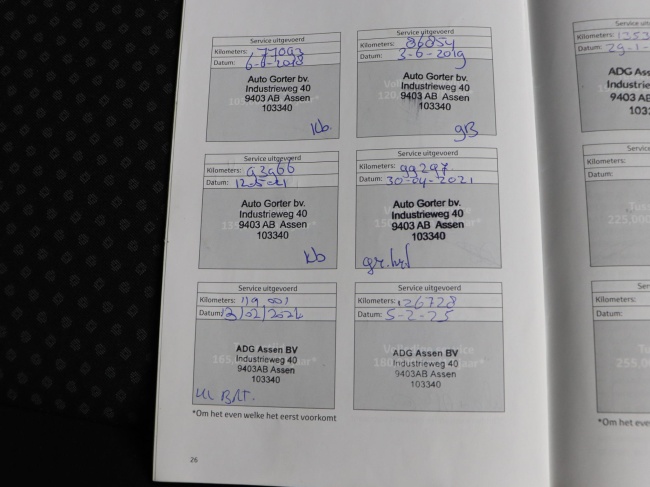 Service uitgevoerd
Kilometers: 77093
Datum: 6-6-2018
Auto Gorter bv.
Industrieweg 40
9403 AB Assen
103340
Kb.
Service uitgevoerd
Kilometers: 86854
Datum: 3-6-2019
Auto Gorter bv.
Industrieweg 40
9403 AB Assen
103340
gB
Service uitgevoerd
Kilometers: 93966
Datum:
Auto Gorter bv.
Industrieweg 40
9403 AB Assen
103340
Kb
Service uitgevoerd
Kilometers: 99297
Datum: 30-04-2021
Auto Gorter bv.
Industrieweg 40
9403 AB Assen
103340
gr.brl
Service uitgevoerd
Kilometers: 119 001
Datum:
165.
ADG Assen BV
Industrieweg 40
9403AB Assen
103340
Service uitgevoerd
Kilometers: 126728
Datum: 5-2-25
ADG Assen BV
Industrieweg 40
9403AB Assen
103340
*Om het even welke het eerst voorkomt
26
Kilometers: 1353
Datum: 29-1-
ADG Ass
Industrie
9403 AB
103
Servic
Kilometers:
Datum:
Tus
225.000
Ser
Kilometers:
Datum:
255.0
*Om het eve